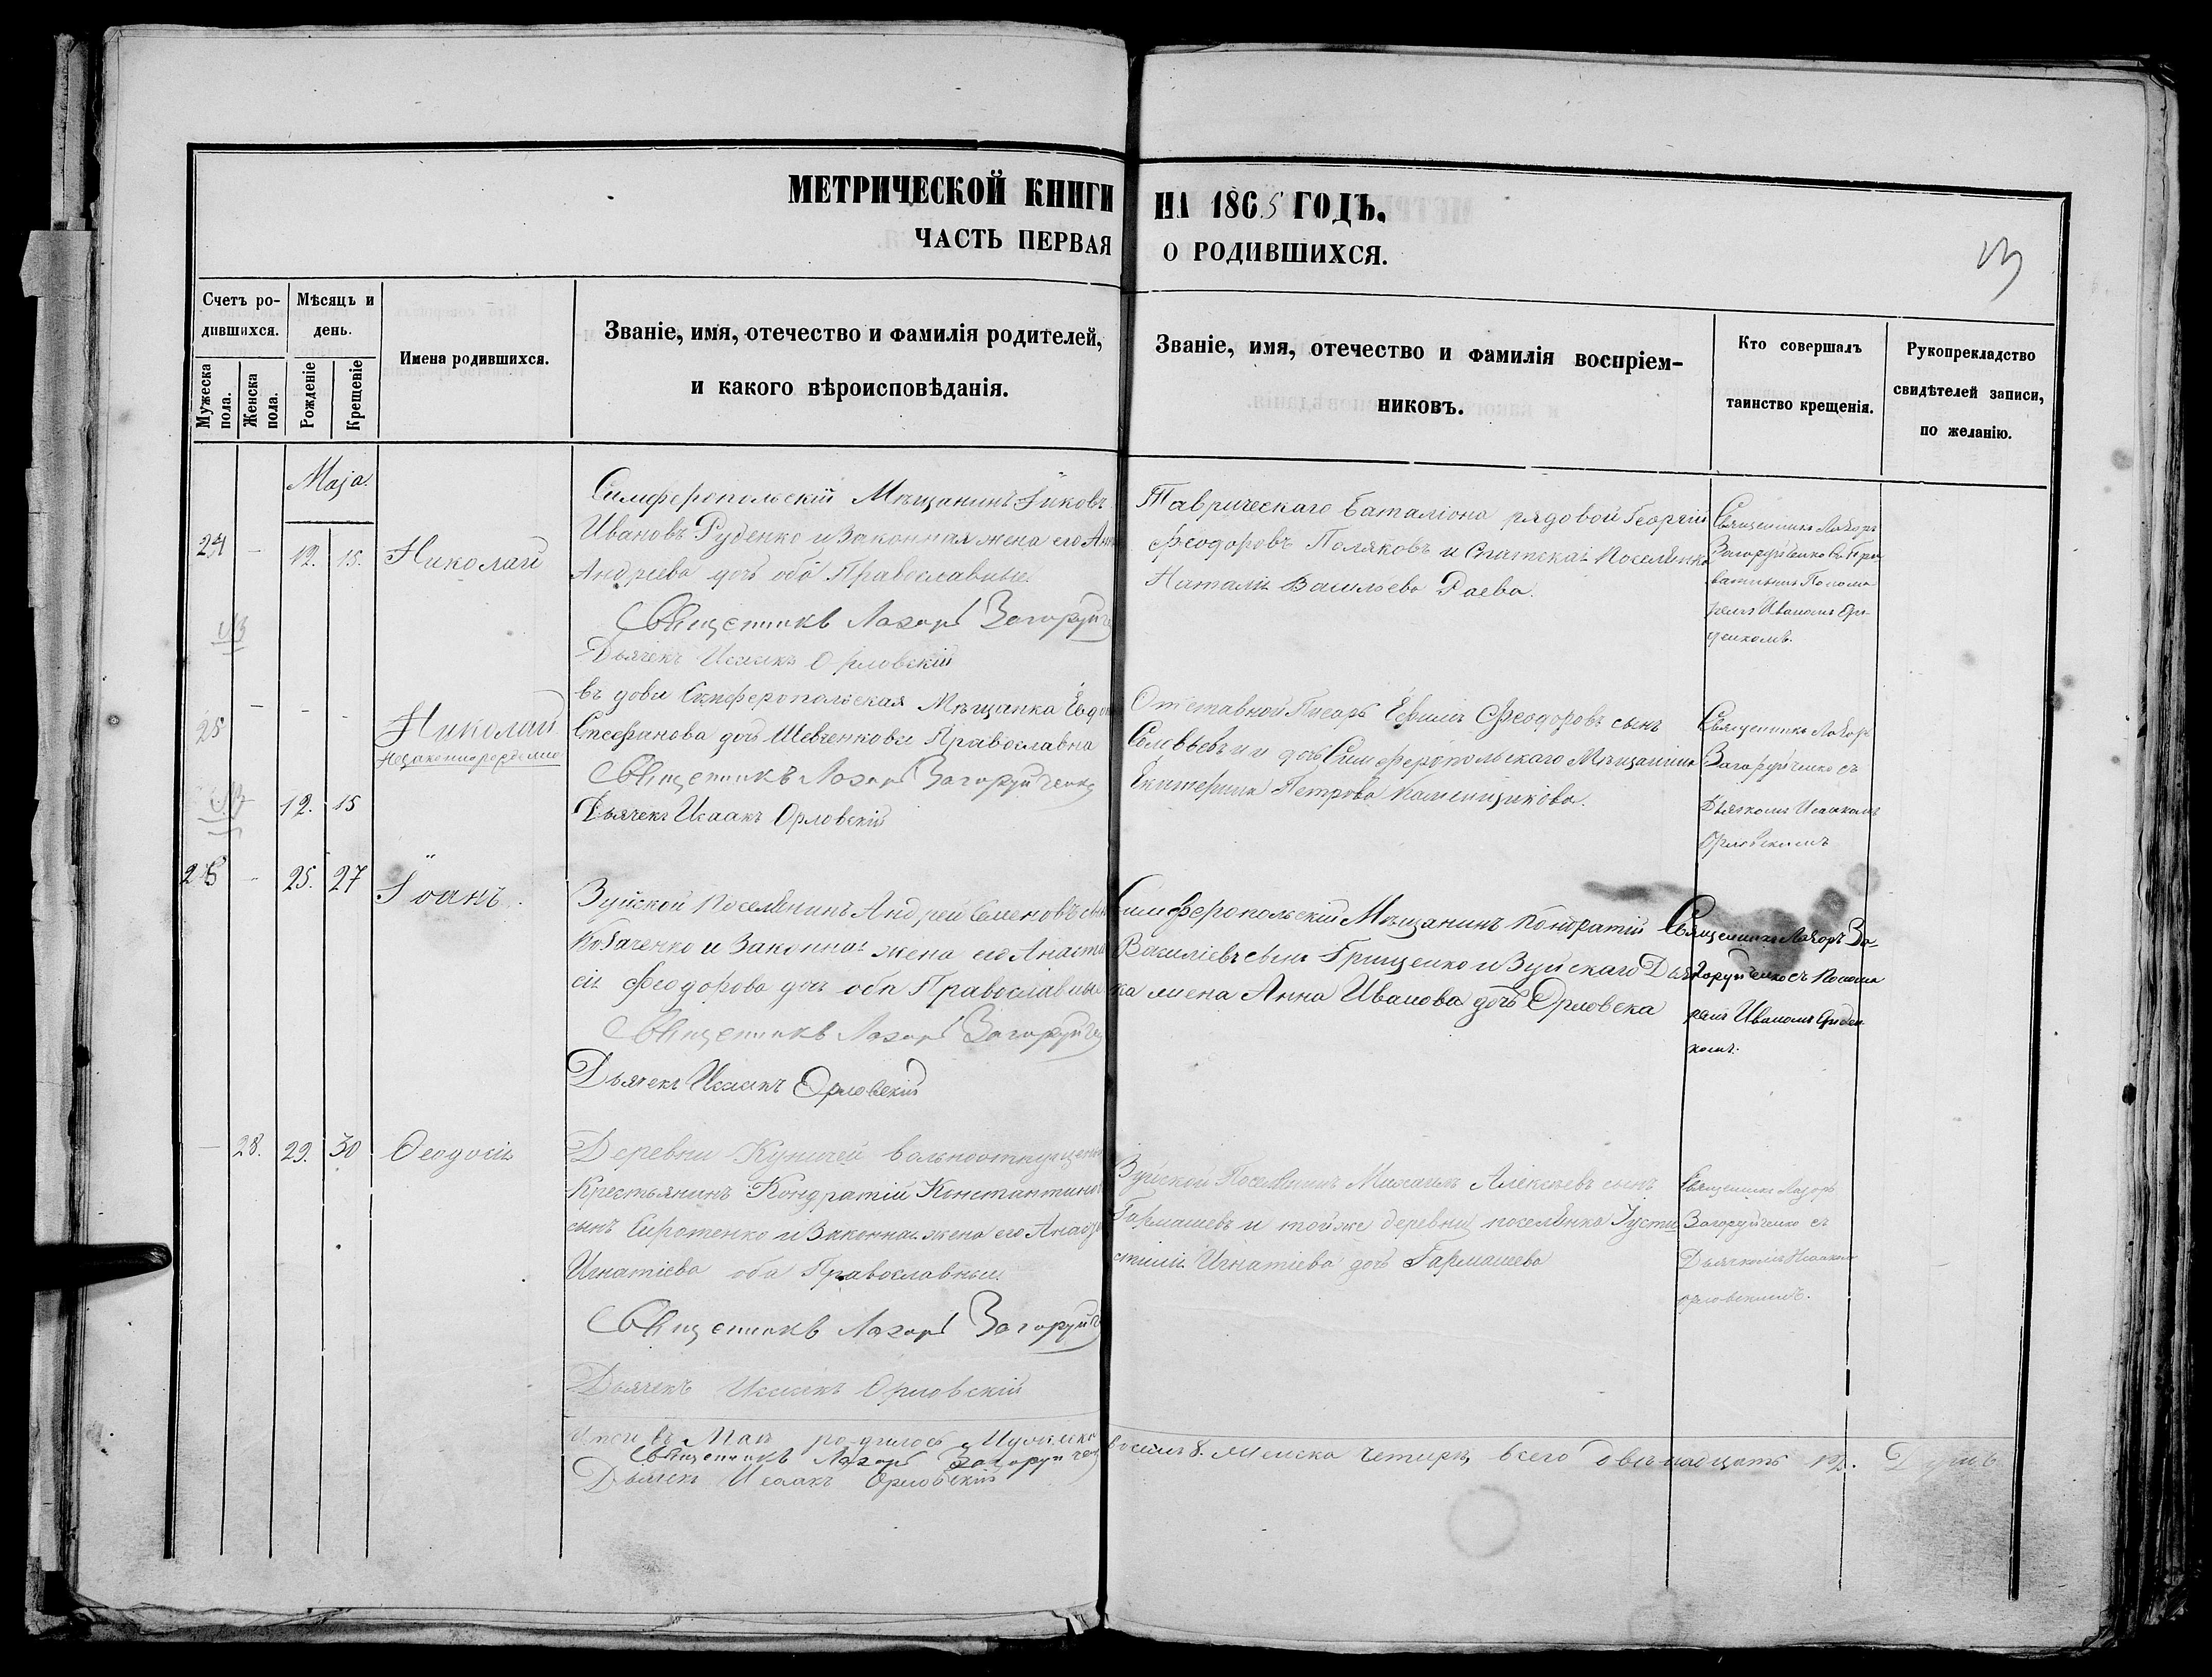 МЕТРИЧЕСКОЙ КНИГИ НА 1865 ГОДЪ.
ЧАСТЬ ПЕРВАЯ О РОДИВШИХСЯ.
Счетъ ро-
дившихся.
Мужеска пола.
Женска пола.
Мѣсяцъ и
день.
Рожденіе
Крещеніе
Имена родившихся.
Званіе, имя, отечество и фамилія родителей,
и какого вѣроисповѣданія.
Званіе, имя, отечество и фамилія воспріем-
никовъ.
Кто совершалъ
таинство крещенія.
Рукоприкладство
свидѣтелей записи,
по желанію.
Маја.
24 - 12. 15. Николай
Симферопольскій Мѣщанинъ Іяковъ
Ивановъ Руденко и Законная жена его
Андреева дочь оба Православные.
Священникъ Лазарь Загоруйч
Дьячекъ Исаакъ Орловскій
Таврическаго Баталіона рядовой Георгій
Феодоровъ Поляковъ и Поселянка
Наталія Васильева Раева.
Священникъ Лазарь
Загоруйченко
Иваномъ
25 - - - Николай
Незаконнорожденный
12. 15
вдова Симферопольская Мѣщанка
Стефанова дочь Шевченкова Православна
Священникъ Лазарь Загоруйченко
Дьячекъ Исаакъ Орловскій
Отставной Писарь Ефимъ Феодоровъ сынъ
Соловьевъ и дочь Симферопольскаго Мѣщанина
Екатерина Петрова Каменщикова.
Священникъ Лазарь
Загоруйченко съ
Дьячкомъ Исаакомъ
Орловскимъ
26 - 25. 27 Іоанъ.
Зуйской Поселянинъ Андрей Семеновъ сынъ
Козаченко и Законная жена его Анаста
сія Феодорова дочь оба Православные
Священникъ Лазарь Загоруйч
Дьячекъ Исаакъ Орловскій
Симферопольскій Мѣщанинъ Кондратій
Василіевъ сынъ Грищенко и Зуйскаго Дьяч
ка жена Анна Иванова дочь Орловска
Священникъ Лазарь За-
горуйченко съ Понома
ремъ Иваномъ
комъ.
- 28. 29. 30 Ѳеодосія
Деревни вольноотпущенны
Крестьянинъ Кондратій Константинов
сынъ Сиротенко и Законная жена его
Игнатіева оба Православные.
Священникъ Лазарь Загоруйч
Дьячекъ Исаакъ Орловскій
Зуйской Поселянинъ Михаилъ Алексѣевъ сынъ
Гармашевъ и тойже деревни поселянка
Игнатіева дочь Гармашева
Священникъ Лазарь
Загоруйченко съ
Дьячкомъ Исааком
орловскимъ.
Итого въ Маѣ родилось Мужеска восемь 8. Женска четыре, всего двѣнадцать 12. Душъ
Священникъ Лазарь Загоруйчен
Дьячекъ Исаакъ Орловскій